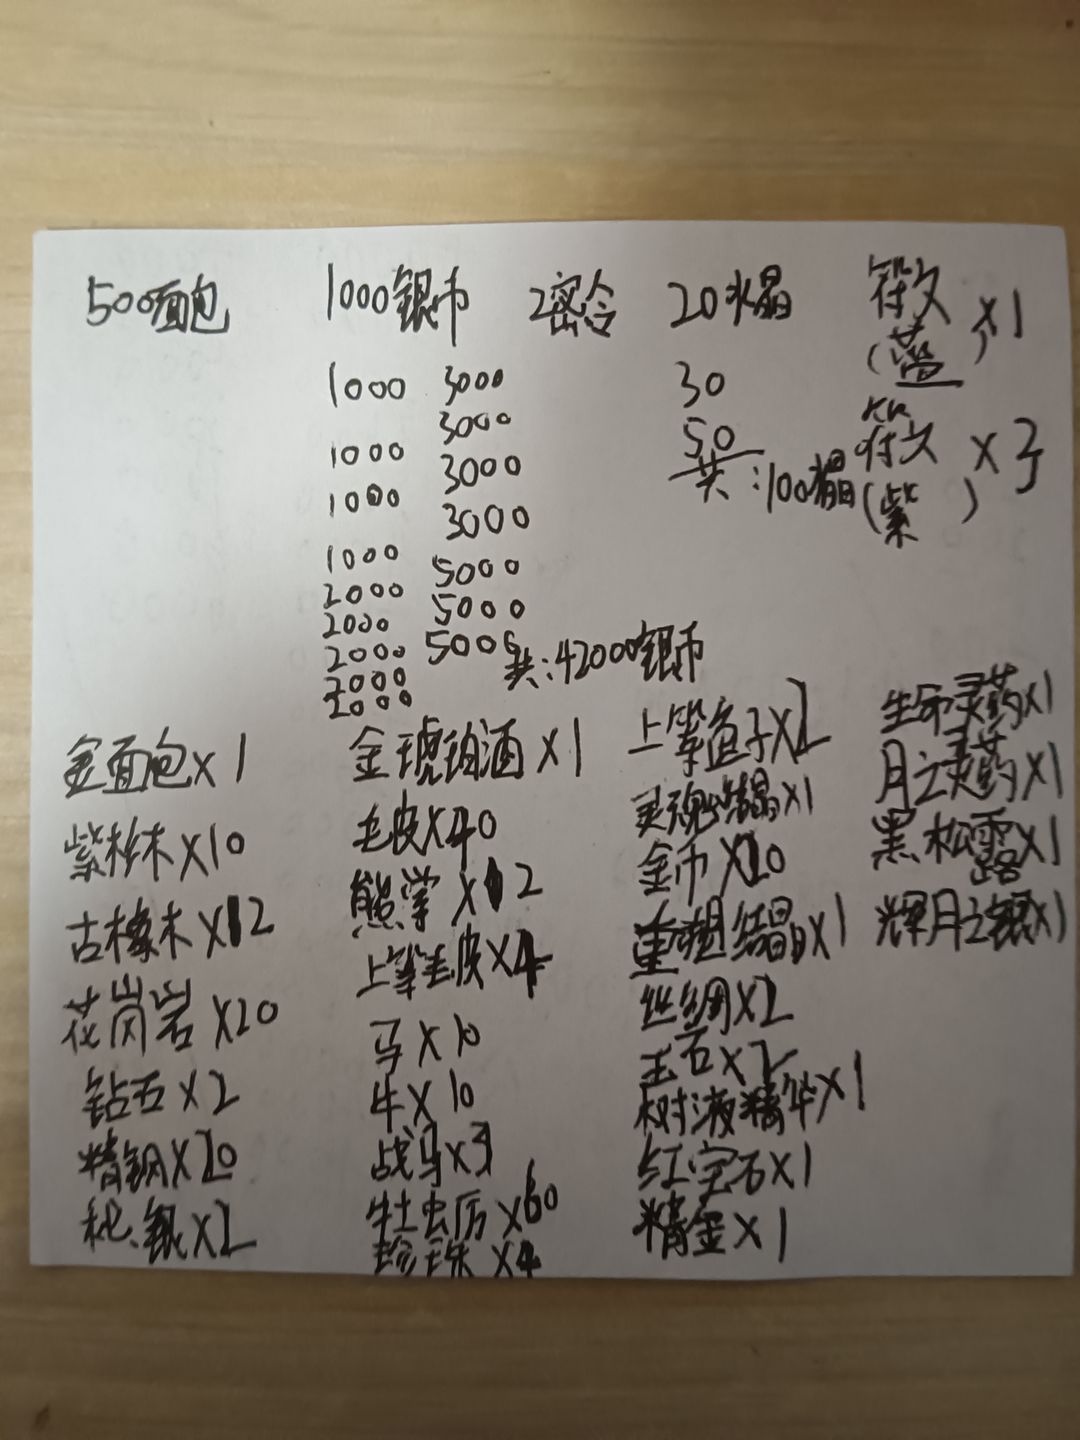 500面包 1000银币 2密令 20水晶 符文(蓝)×1
1000 3000 30
3000
1000 3000 50 符文(紫)×3
1000 3000 共:100水晶
1000 5000
2000 5000
2000 5000
2000 共:42000银币
2000
2000
金面包×1
紫杉木×10
古橡木×12
花岗岩×20
钻石×2
精钢×20
秘银×2
金琥珀酒×1
毛皮×40
熊掌×12
上等毛皮×4
马×10
牛×10
战马×3
牡虫厉×60
珍珠×4
上等鱼子×2
灵魂结晶×1
金币×20
重塑结晶×1
丝绸×2
玉石×2
树液精华×1
红宝石×1
精金×1
生命灵药×1
月之灵药×1
黑松露×1
辉月之银×1